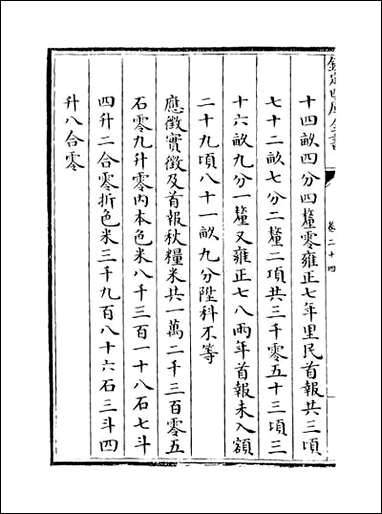 欽定四庫全書
卷二十四
十四畝四分四釐零雍正七年里民首報共三頃
七十二畝七分二釐二項共三千零五十三頃三
十六畝九分一釐又雍正七八兩年首報未入額
二十九頃八十一畝九分陞科不等
應徵實徵及首報秋糧米共一萬二千三百零五
石零九升零內本色米八千三百一十八石七斗
四升二合零折色米三千九百八十六石三斗四
升八合零